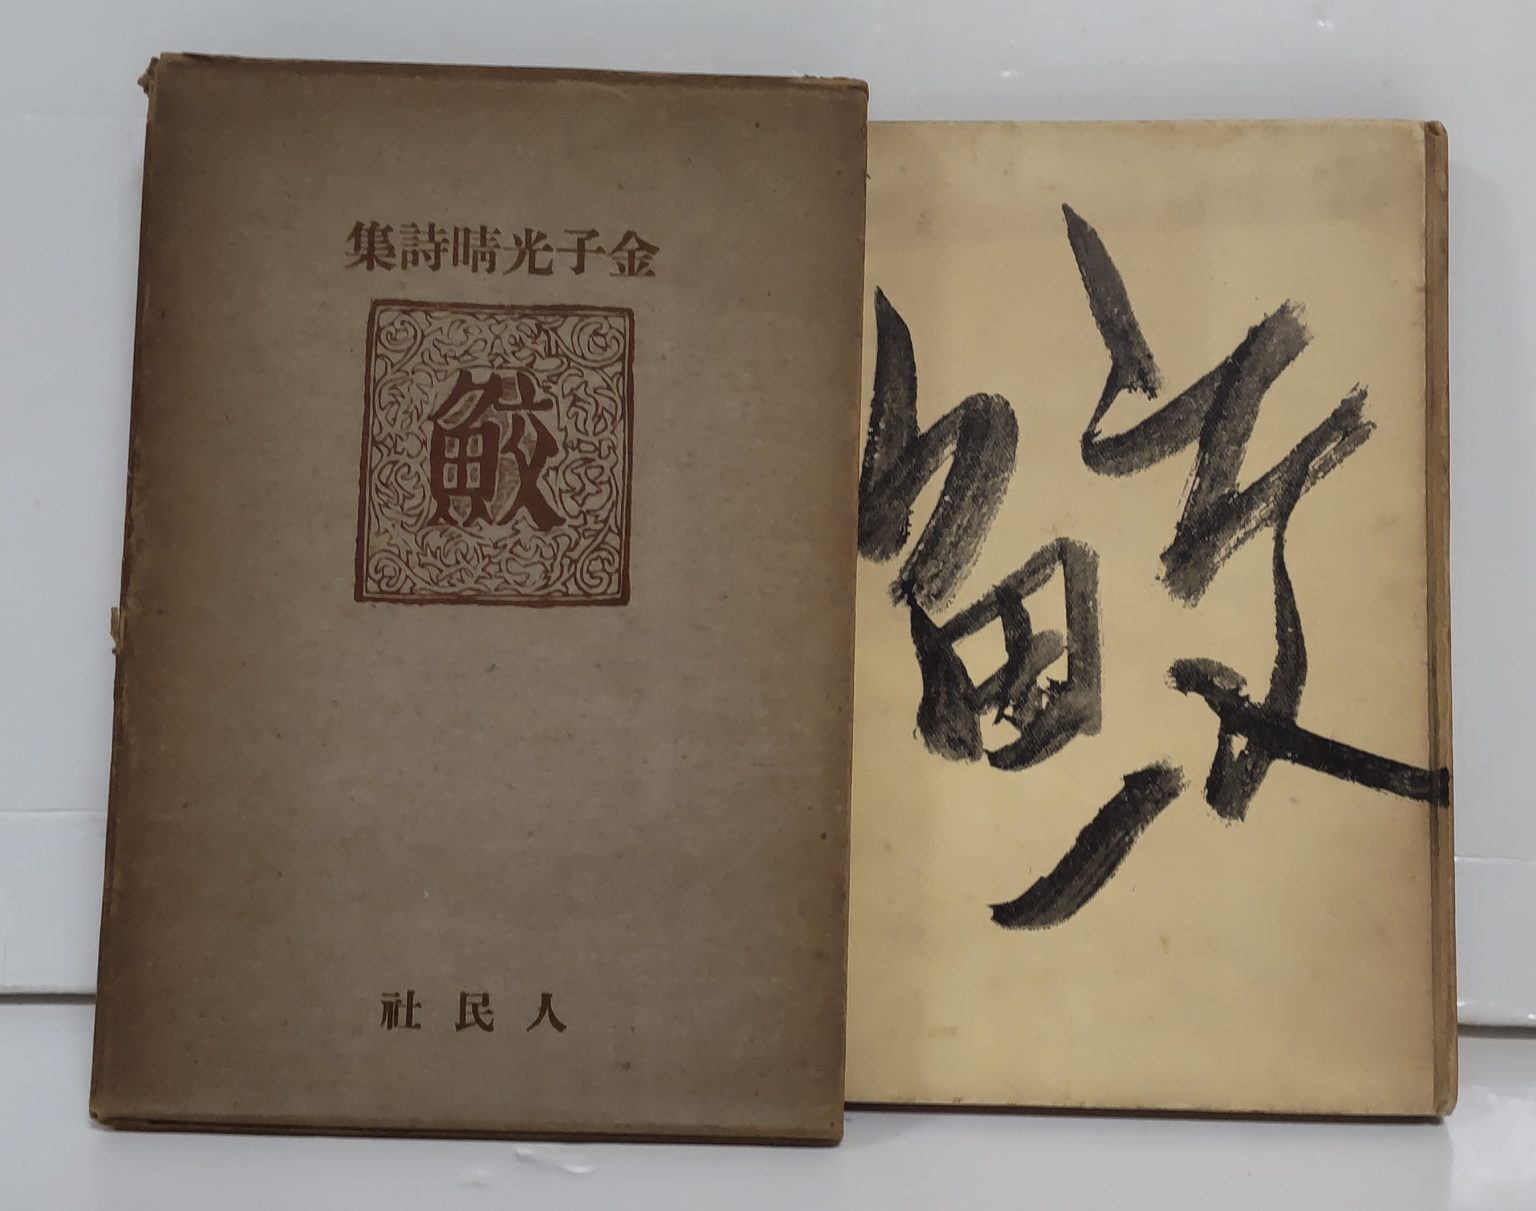 金子光晴詩集
鮫
人民社
鮫